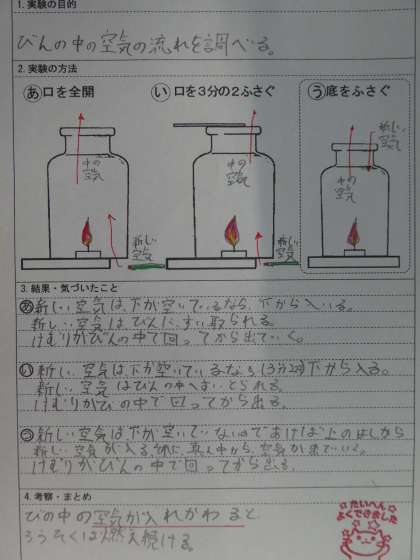 1. 実験の目的
びんの中の空気の流れを調べる。
2. 実験の方法
あ 口を全開
い 口を3分の2ふさぐ
う 底をふさぐ
中の空気
新しい空気
中の空気
新しい空気
中の空気
新しい空気
3. 結果・気づいたこと
あ新しい空気は、下が空いているなら、下から入いる。
新しい空気はびんにすい取られる。
けむりがびんの中で回ってから出ていく。
い新しい空気は下が空いているなら(3分の2)下から入る。
新しい空気はびんの中へすいとられる。
けむりがびの中で回ってから出る。
う新しい空気は下が空いていないのであけば上のはしから
新しい空気が入る。 真ん中から、空気が出ていく。
けむりがびんの中で回ってから出る。
4. 考察・まとめ
びの中の空気が入れかわると
ろうそくは燃え続ける。
☆たいへん☆
よくできました